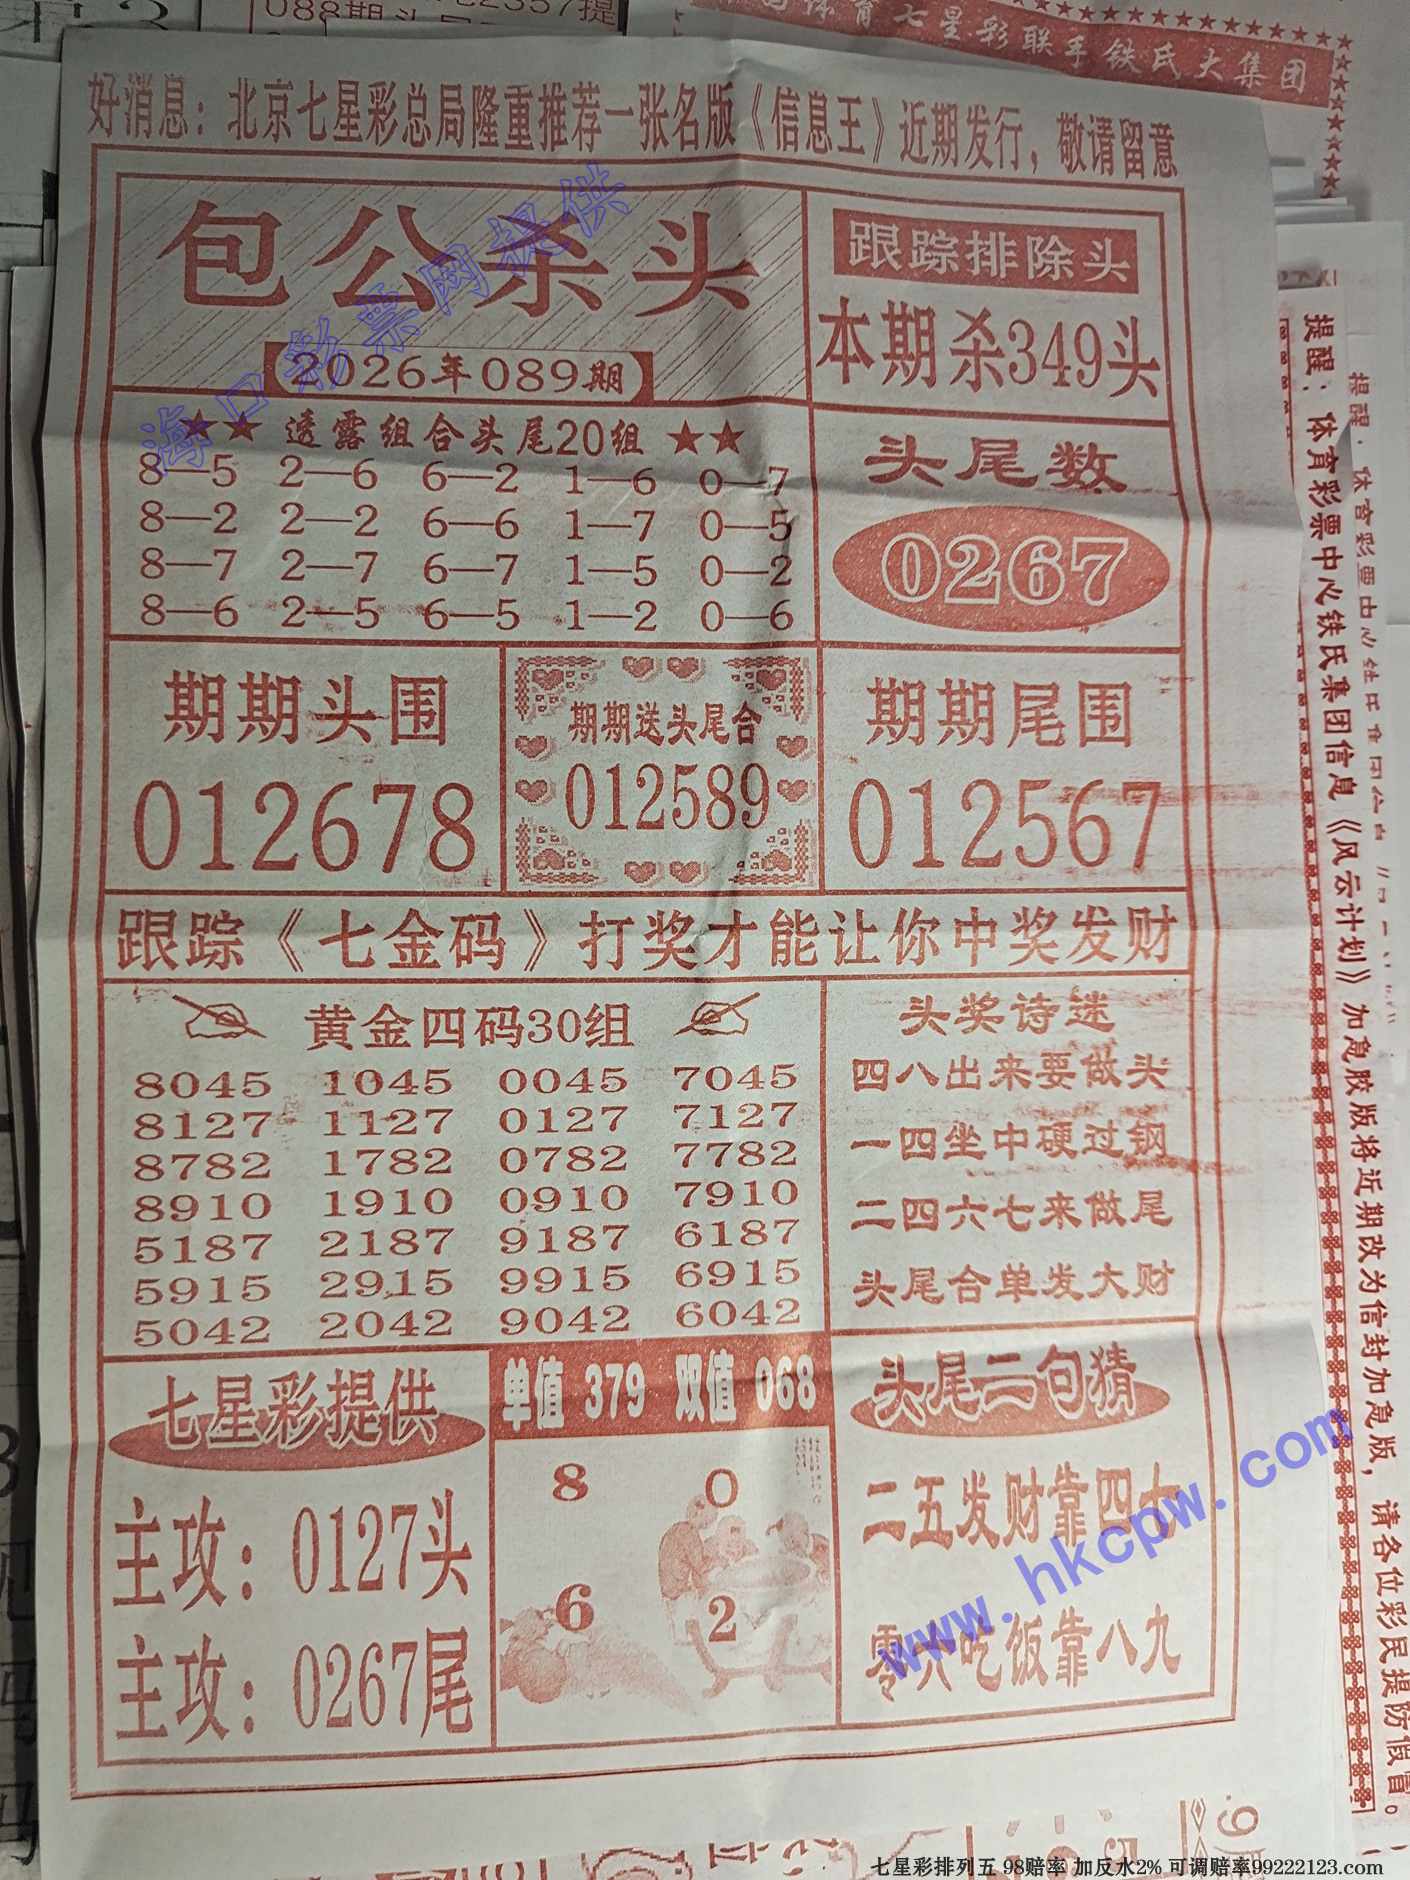 好消息：北京七星彩总局隆重推荐一张名版《信息王》近期发行，敬请留意
包公杀头
2026年089期
跟踪排除头
本期杀349头
★★ 透露组合头尾20组 ★★
8—5 2—6 6—2 1—6 0—7
8—2 2—2 6—6 1—7 0—5
8—7 2—7 6—7 1—5 0—2
8—6 2—5 6—5 1—2 0—6
头尾数
0267
期期头围
012678
期期送头尾合
012589
期期尾围
012567
跟踪《七金码》打奖才能让你中奖发财
黄金四码30组
8045 1045 0045 7045
8127 1127 0127 7127
8782 1782 0782 7782
8910 1910 0910 7910
5187 2187 9187 6187
5915 2915 9915 6915
5042 2042 9042 6042
头奖诗迷
四八出来要做头
一四坐中硬过钢
二四六七来做尾
头尾合单发大财
七星彩提供
主攻：0127头
主攻：0267尾
单值 379 双值 068
8 0
6 2
头尾二句猜
二五发财靠四七
零六吃饭靠八九
海口彩票网提供
www.hkcpw.com
体育七星彩联手铁氏大集团
提醒：体育彩票中心铁氏集团信息《风云计划》加急胶版将近期改为信封加急版，请各位彩民提防假冒。
七星彩排列五 98赔率 加反水2% 可调赔率99222123.com